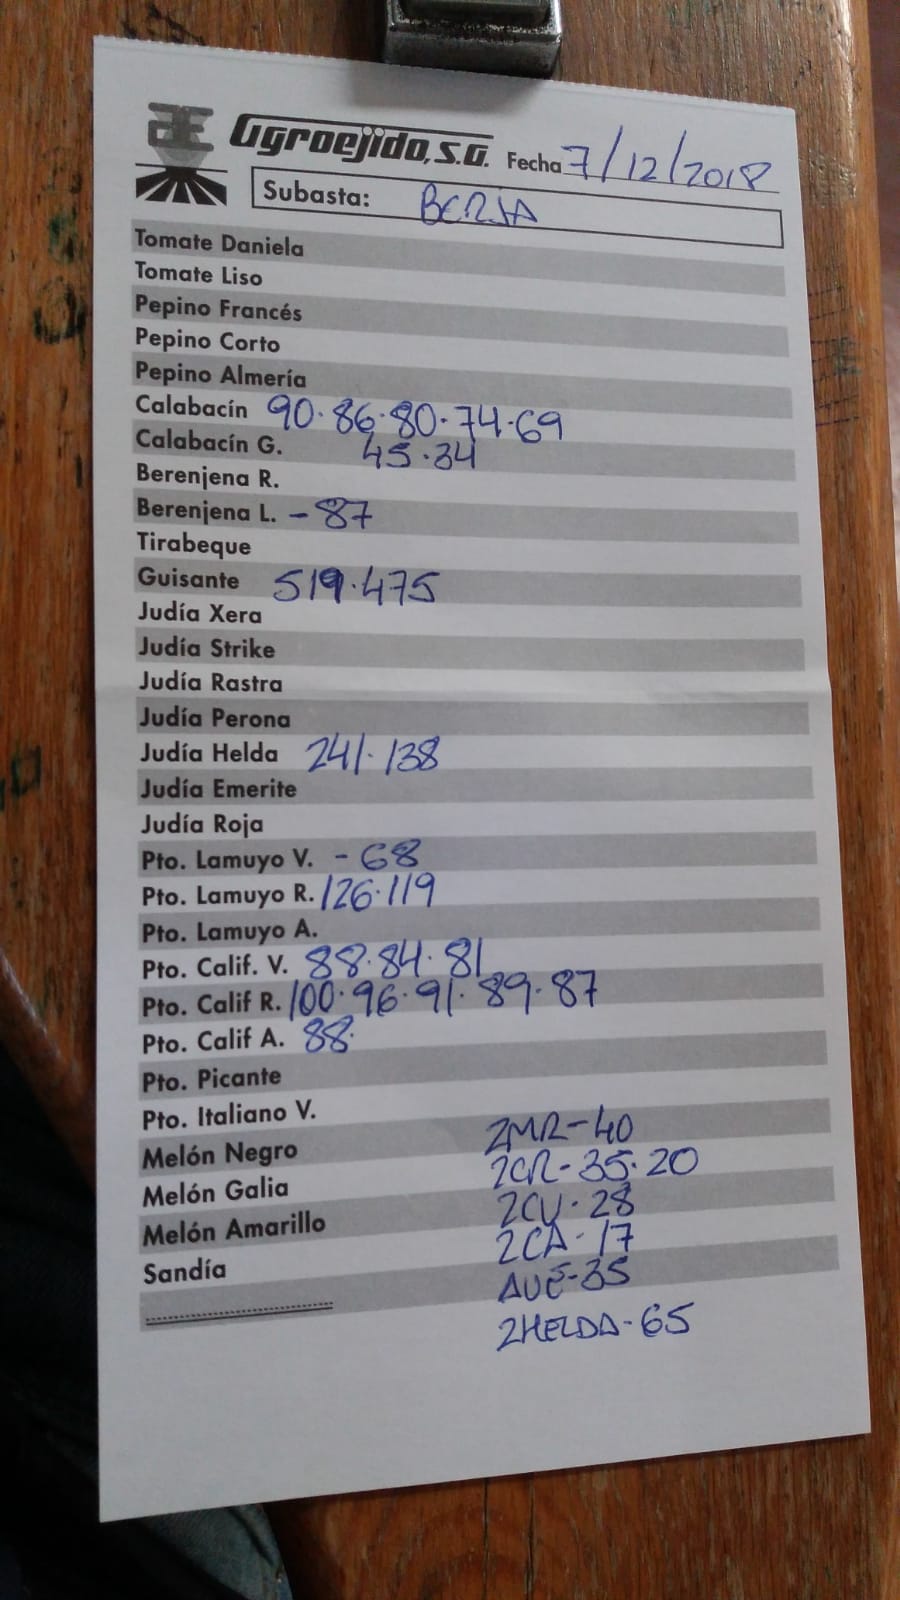 Agroejido, S.A. Fecha 7/12/2018
Subasta: BERJA
Tomate Daniela
Tomate Liso
Pepino Francés
Pepino Corto
Pepino Almería
Calabacín 90·86·80·74·69
Calabacín G. 45·34
Berenjena R.
Berenjena L. -87
Tirabeque
Guisante 519·475
Judía Xera
Judía Strike
Judía Rastra
Judía Perona
Judía Helda 241·138
Judía Emerite
Judía Roja
Pto. Lamuyo V. -68
Pto. Lamuyo R. 126·119
Pto. Lamuyo A.
Pto. Calif. V. 88·84·81
Pto. Calif R. 100·96·91·89·87
Pto. Calif A. 88·
Pto. Picante
Pto. Italiano V.
2MR-40
Melón Negro
2CR-35·20
Melón Galia
2CV·28
Melón Amarillo
2CA-17
Sandía
-35
2HELDA-65